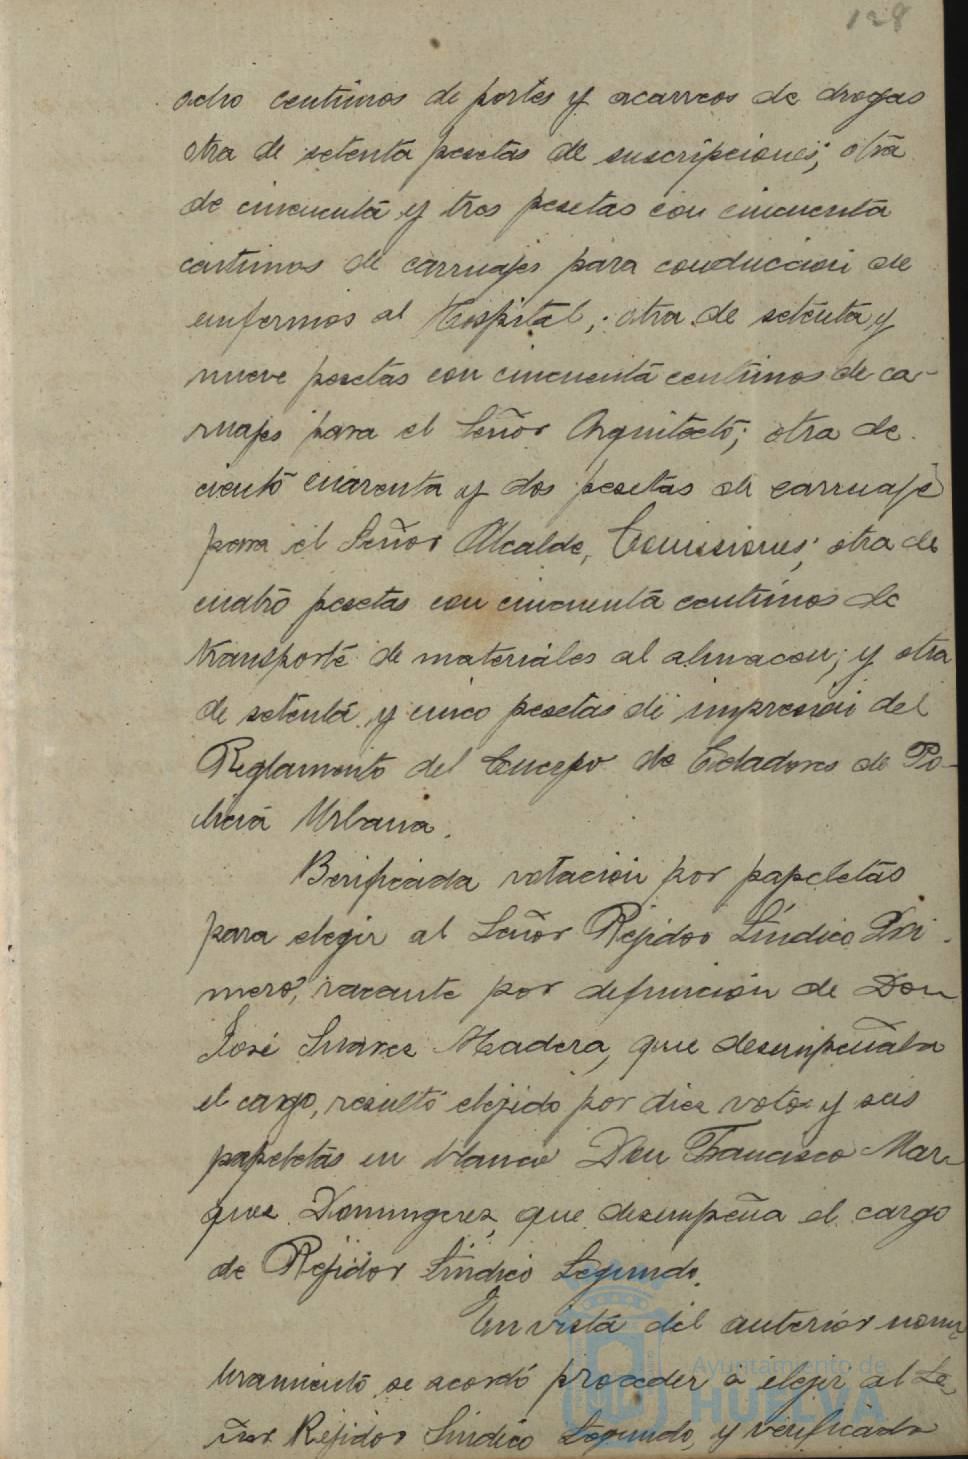 128
ocho centimos de portes y acarreos de drogas
otra de setenta pesetas de suscripciones; otra
de cincuenta y tres pesetas con cincuenta
centimos de carruajes para conduccion de
enfermos al Hospital; otra de setenta y
nueve pesetas con cincuenta centimos de ca-
rruajes para el Señor Arquitecto; otra de
ciento cuarenta y dos pesetas de carruaje
para el Señor Alcalde, Comisiones; otra de
cuatro pesetas con cincuenta centimos de
transporte de materiales al almacen; y otra
de setenta y cinco pesetas de impresión del
Reglamento del Cuerpo de Celadores de Po-
licia Urbana.
Berificada votacion por papeletas
para elegir al Señor Rejidor Síndico Pri-
mero, vacante por defunción de Don
José Suarez Madera, que desempeñaba
el cargo, resultó elejido por diez votos y seis
papeletas en blanco Don Francisco Mar-
quez Dominguez, que desempeña el cargo
de Rejidor Síndico Segundo.
En vista del anterior nom-
bramiento se acordó proceder a elejir al Se-
ñor Rejidor Sindico Segundo, y verificada
Ayuntamiento de
HUELVA